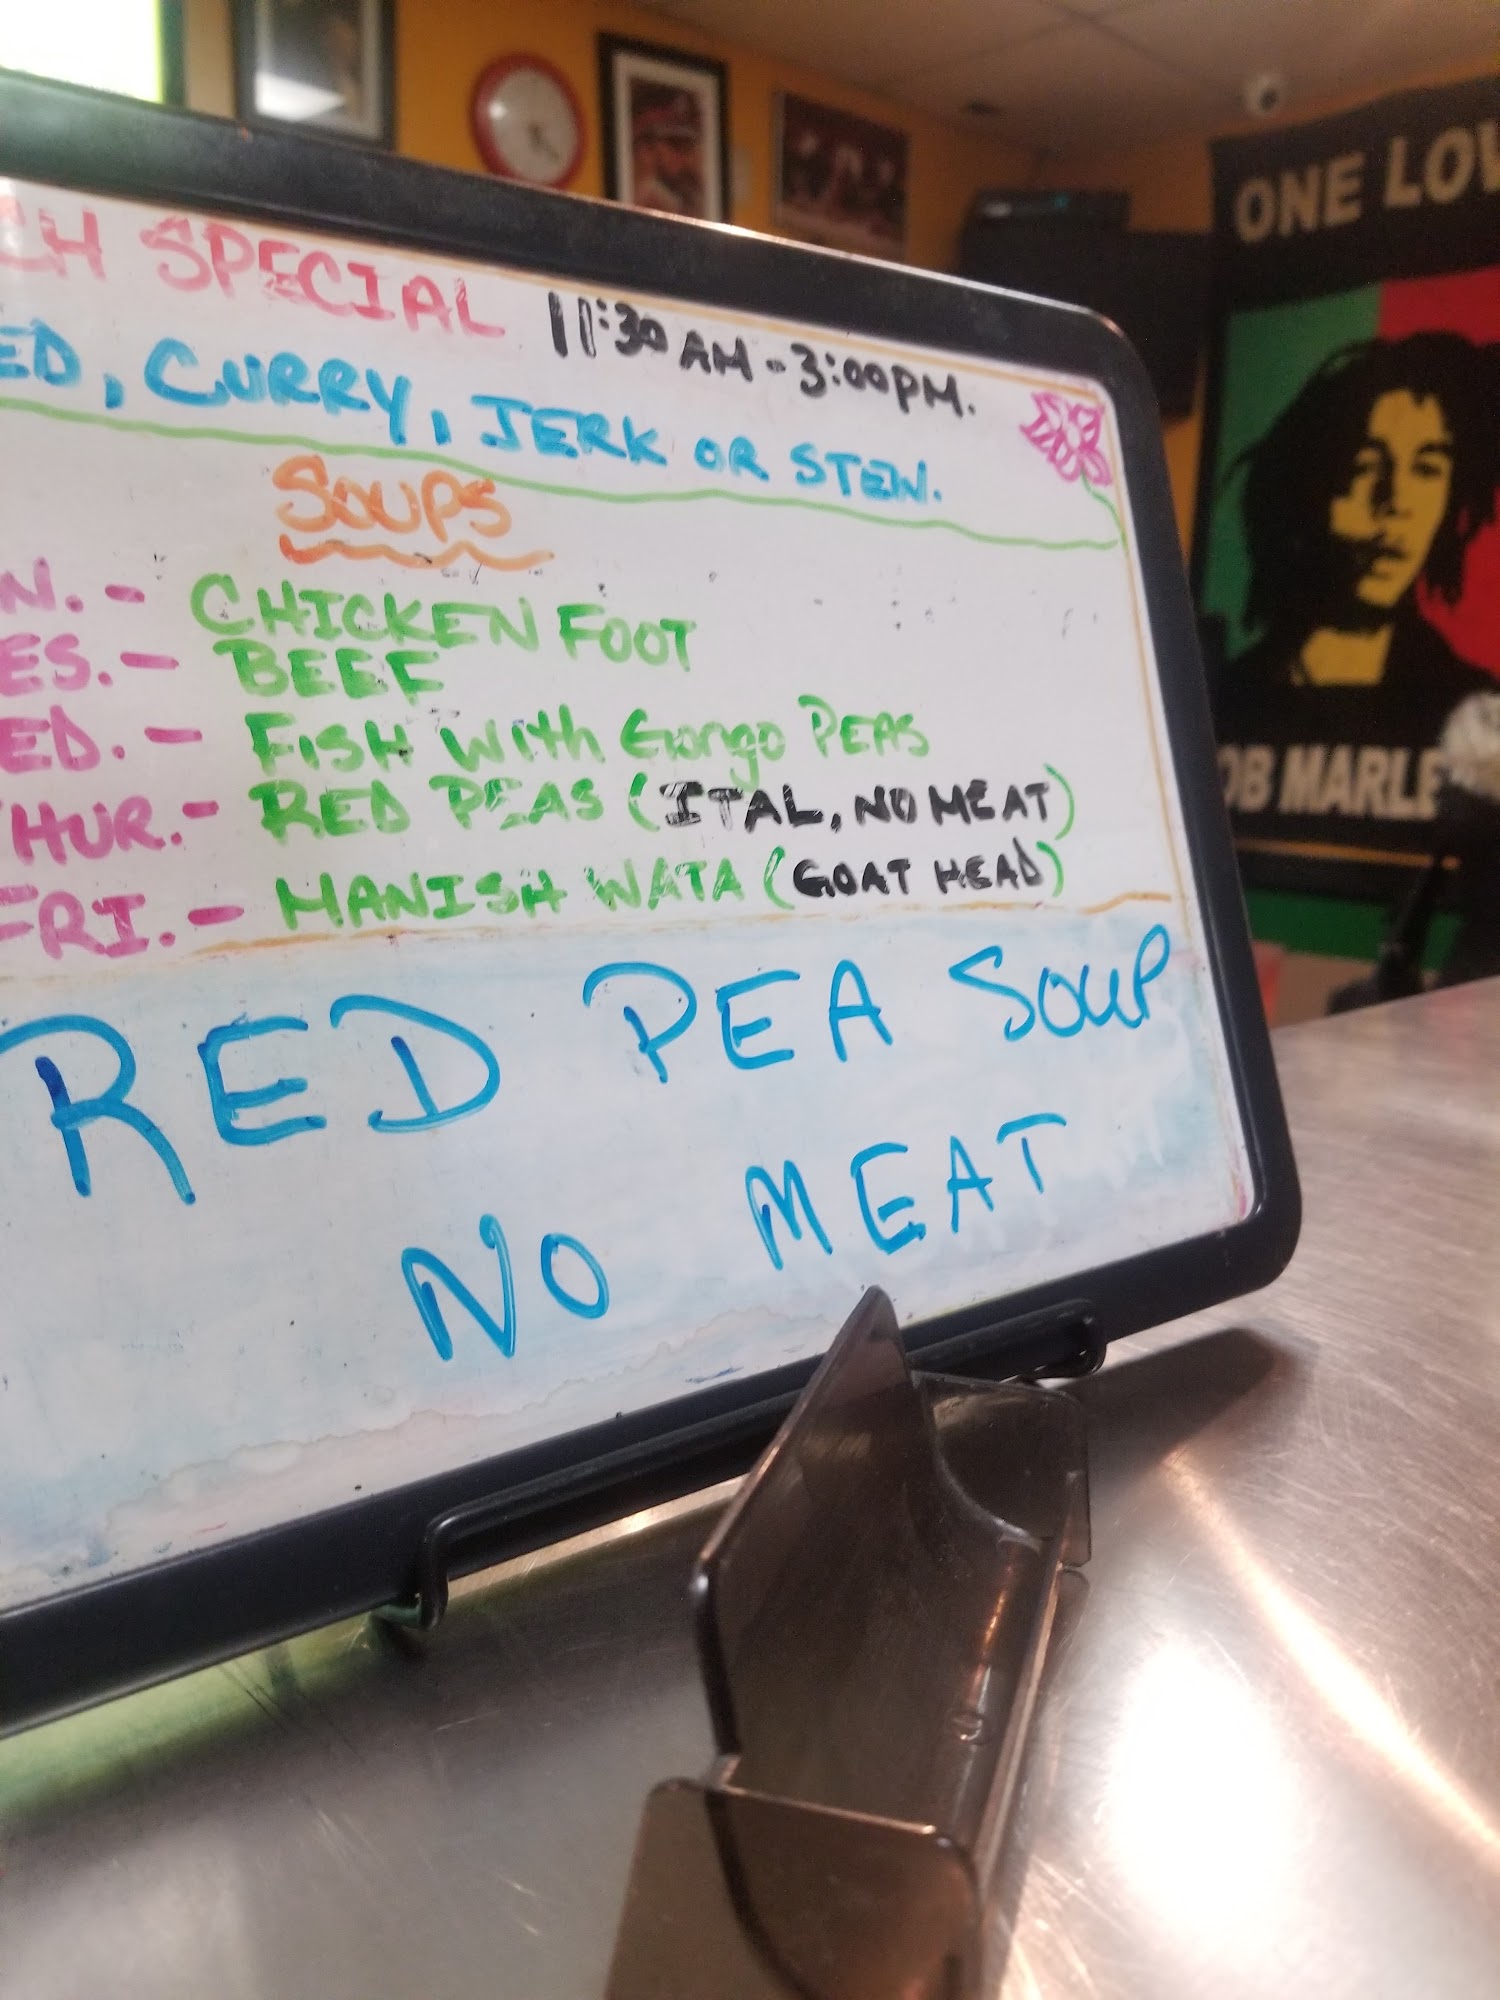 CH SPECIAL 11:30 AM - 3:00PM.
ED, CURRY, JERK OR STEW.
SOUPS
N. - CHICKEN FOOT
ES. - BEEF
ED. - FISH WITH Gongo PEAS
THUR. - RED PEAS (ITAL, NO MEAT)
FRI. - MANISH WATA (GOAT HEAD)
RED PEA SOUP
NO MEAT
ONE LOV
OB MARLE